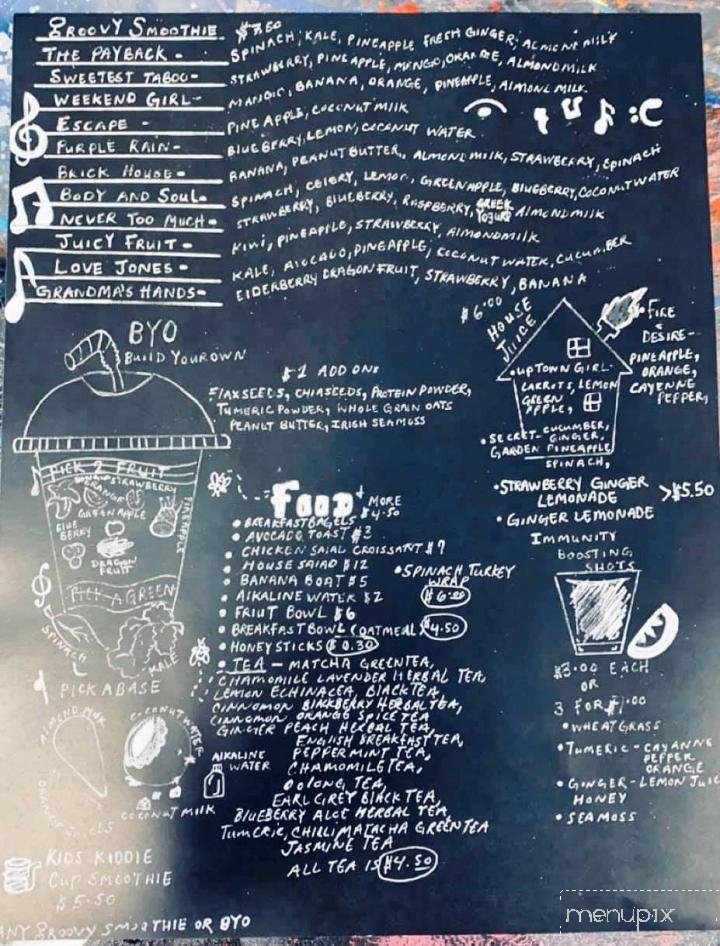 GROOVY SMOOTHIE
THE PAYBACK - SPINACH, KALE, PINEAPPLE FRESH GINGER, ALMOND MILK
SWEETEST TABOO - STRAWBERRY, PINEAPPLE, MANGO, ORANGE, ALMOND MILK
WEEKEND GIRL - BANANA, ORANGE, PINEAPPLE, ALMOND MILK.
ESCAPE - PINEAPPLE, COCONUT MILK
PURPLE RAIN - BLUEBERRY, LEMON, COCONUT WATER
BRICK HOUSE - BANANA, PEANUT BUTTER, ALMOND MILK, STRAWBERRY, SPINACH
BODY AND SOUL - SPINACH, CELERY, LEMON, GREEN APPLE, BLUEBERRY, COCONUT WATER
NEVER TOO MUCH - STRAWBERRY, BLUEBERRY, RASPBERRY, GREEK YOGURT ALMOND MILK
JUICY FRUIT - KIWI, PINEAPPLE, STRAWBERRY, ALMOND MILK
LOVE JONES - KALE, AVOCADO, PINEAPPLE, COCONUT WATER, CUCUMBER
GRANDMA'S HANDS - ELDERBERRY DRAGON FRUIT, STRAWBERRY, BANANA
BYO
BUILD YOUR OWN
$1 ADD ONS
FLAXSEEDS, CHIASEEDS, PROTEIN POWDER,
TUMERIC POWDER, WHOLE GRAIN OATS
PEANUT BUTTER, IRISH SEAMOSS
PICK 2 FRUIT
BANANA STRAWBERRY
ORANGE
GREEN APPLE
BLUE
BERRY
PINEAPPLE
DRAGON
FRUIT
PICK A GREEN
SPINACH
KALE
PICK A BASE
ALMOND MILK
COCONUT WATER
ALKALINE
WATER
COCONUT MILK
KIDS KIDDIE
CUP SMOOTHIE
$5.50
ANY GROOVY SMOOTHIE OR BYO
FOOD & MORE
BREAKFAST BAGELS $4.50
AVOCADO TOAST $3
CHICKEN SALAD CROISSANT $7
HOUSE SALAD $12
BANANA BOAT $5
SPINACH TURKEY
WRAP
$6.00
ALKALINE WATER $2
FRUIT BOWL $6
BREAKFAST BOWL (OATMEAL) $4.50
HONEY STICKS $0.30
TEA - MATCHA GREEN TEA,
CHAMOMILE LAVENDER HERBAL TEA,
LEMON ECHINACEA, BLACK TEA,
CINNOMON BLACKBERRY HERBAL TEA,
CINNOMON ORANGE SPICE TEA
GINGER PEACH HERBAL TEA,
ENGLISH BREAKFAST TEA,
PEPPERMINT TEA,
CHAMOMILE TEA,
OOLONG TEA,
EARL GREY BLACK TEA,
BLUEBERRY ALOE HERBAL TEA,
TUMERIC, CHILLI MATACHA GREEN TEA
JASMINE TEA
ALL TEA IS $4.50
$6.00
HOUSE
JUICE
UPTOWN GIRL -
CARROTS, LEMON
GREEN
APPLE,
FIRE
&
DESIRE -
PINEAPPLE,
ORANGE,
CAYENNE
PEPPER,
SECRET - CUCUMBER,
GINGER,
GARDEN PINEAPPLE
SPINACH,
STRAWBERRY GINGER
LEMONADE
>$5.50
GINGER LEMONADE
IMMUNITY
BOOSTING
SHOTS
$3.00 EACH
OR
3 FOR
WHEAT GRASS
TUMERIC - CAYANNE
PEPPER
ORANGE
GINGER - LEMON JUIC
HONEY
SEA MOSS
menupix